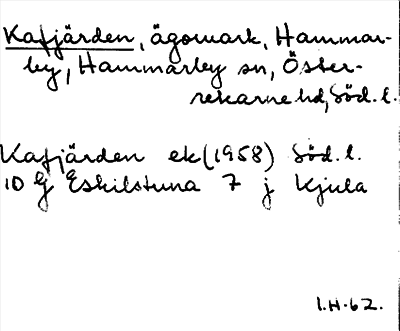 Kafjärden, ägomark, Hammar-
by, Hammarby sn, Öster-
rekarne hd, Söd. l.
Kafjärden ek (1958) Söd. l.
10 G Eskilstuna 7 j Kjula
I.H-62.